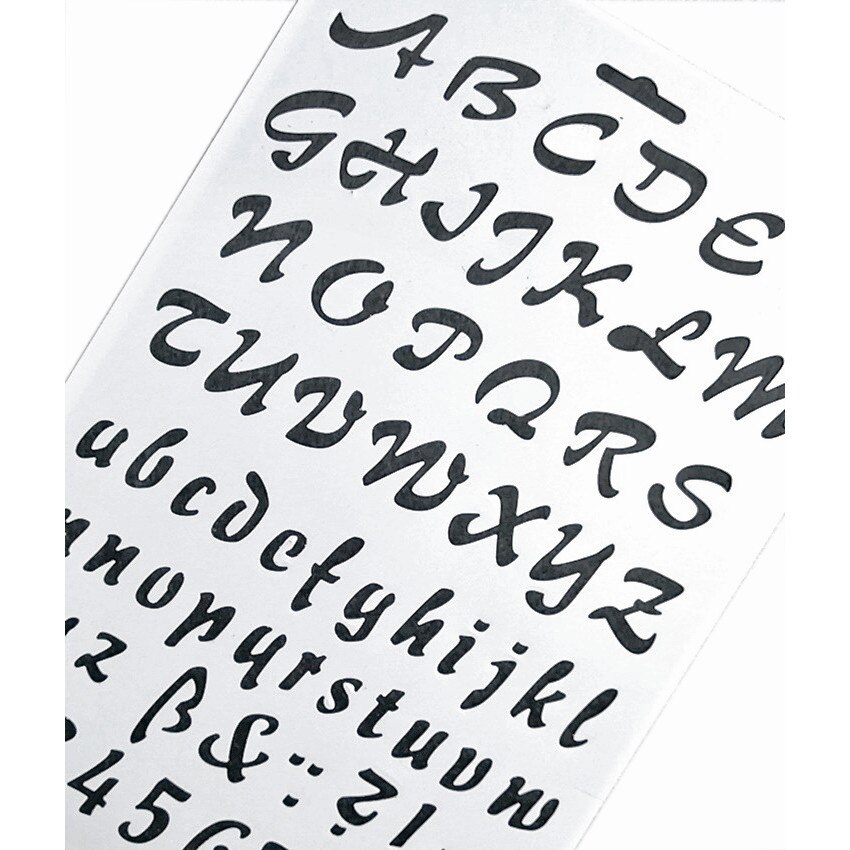 A B C D E
G H I J K L M
N O P Q R S
T U V W X Y Z
a b c d e f g h i j k l
m n o p q r s t u v w
y z ß & : ; ? !
4 5 6